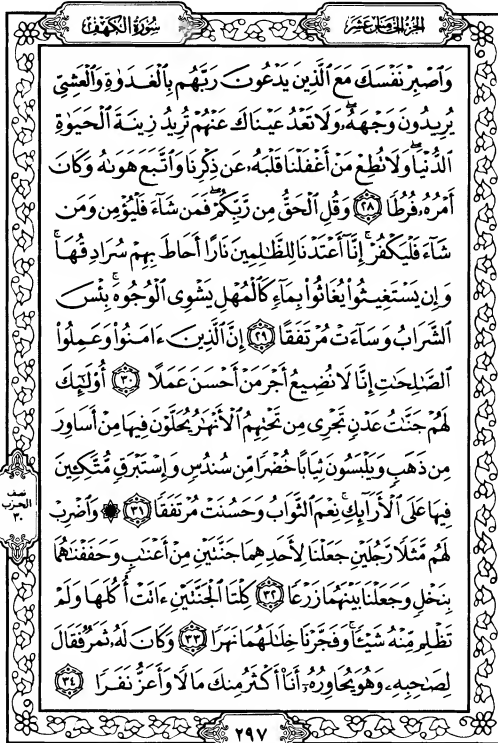 سُورَةُ الكَهْفِ
الجُزْءُ الخَامِسَ عَشَرَ
وَٱصْبِرْ نَفْسَكَ مَعَ ٱلَّذِينَ يَدْعُونَ رَبَّهُم بِٱلْغَدَوٰةِ وَٱلْعَشِىِّ
يُرِيدُونَ وَجْهَهُۥۖ وَلَا تَعْدُ عَيْنَاكَ عَنْهُمْ تُرِيدُ زِينَةَ ٱلْحَيَوٰةِ
ٱلدُّنْيَاۖ وَلَا تُطِعْ مَنْ أَغْفَلْنَا قَلْبَهُۥ عَن ذِكْرِنَا وَٱتَّبَعَ هَوَىٰهُ وَكَانَ
أَمْرُهُۥ فُرُطًا ٢٨ وَقُلِ ٱلْحَقُّ مِن رَّبِّكُمْۖ فَمَن شَآءَ فَلْيُؤْمِن وَمَن
شَآءَ فَلْيَكْفُرْۚ إِنَّآ أَعْتَدْنَا لِلظَّـٰلِمِينَ نَارًا أَحَاطَ بِهِمْ سُرَادِقُهَاۚ
وَإِن يَسْتَغِيثُوا۟ يُغَاثُوا۟ بِمَآءٍ كَٱلْمُهْلِ يَشْوِى ٱلْوُجُوهَۚ بِئْسَ
ٱلشَّرَابُ وَسَآءَتْ مُرْتَفَقًا ٢٩ إِنَّ ٱلَّذِينَ ءَامَنُوا۟ وَعَمِلُوا۟
ٱلصَّـٰلِحَـٰتِ إِنَّا لَا نُضِيعُ أَجْرَ مَنْ أَحْسَنَ عَمَلًا ٣٠ أُو۟لَـٰٓئِكَ
لَهُمْ جَنَّـٰتُ عَدْنٍ تَجْرِى مِن تَحْتِهِمُ ٱلْأَنْهَـٰرُ يُحَلَّوْنَ فِيهَا مِنْ أَسَاوِرَ
مِن ذَهَبٍ وَيَلْبَسُونَ ثِيَابًا خُضْرًا مِّن سُندُسٍ وَإِسْتَبْرَقٍ مُّتَّكِـِٔينَ
فِيهَا عَلَى ٱلْأَرَآئِكِۚ نِعْمَ ٱلثَّوَابُ وَحَسُنَتْ مُرْتَفَقًا ٣١ ۞ وَٱضْرِبْ
لَهُم مَّثَلًا رَّجُلَيْنِ جَعَلْنَا لِأَحَدِهِمَا جَنَّتَيْنِ مِنْ أَعْنَـٰبٍ وَحَفَفْنَـٰهُمَا
بِنَخْلٍ وَجَعَلْنَا بَيْنَهُمَا زَرْعًا ٣٢ كِلْتَا ٱلْجَنَّتَيْنِ ءَاتَتْ أُكُلَهَا وَلَمْ
تَظْلِم مِّنْهُ شَيْـًٔاۚ وَفَجَّرْنَا خِلَـٰلَهُمَا نَهَرًا ٣٣ وَكَانَ لَهُۥ ثَمَرٌ فَقَالَ
لِصَـٰحِبِهِۦ وَهُوَ يُحَاوِرُهُۥٓ أَنَا۠ أَكْثَرُ مِنكَ مَالًا وَأَعَزُّ نَفَرًا ٣٤
نصف
الحزب
٣٠
٢٩٧